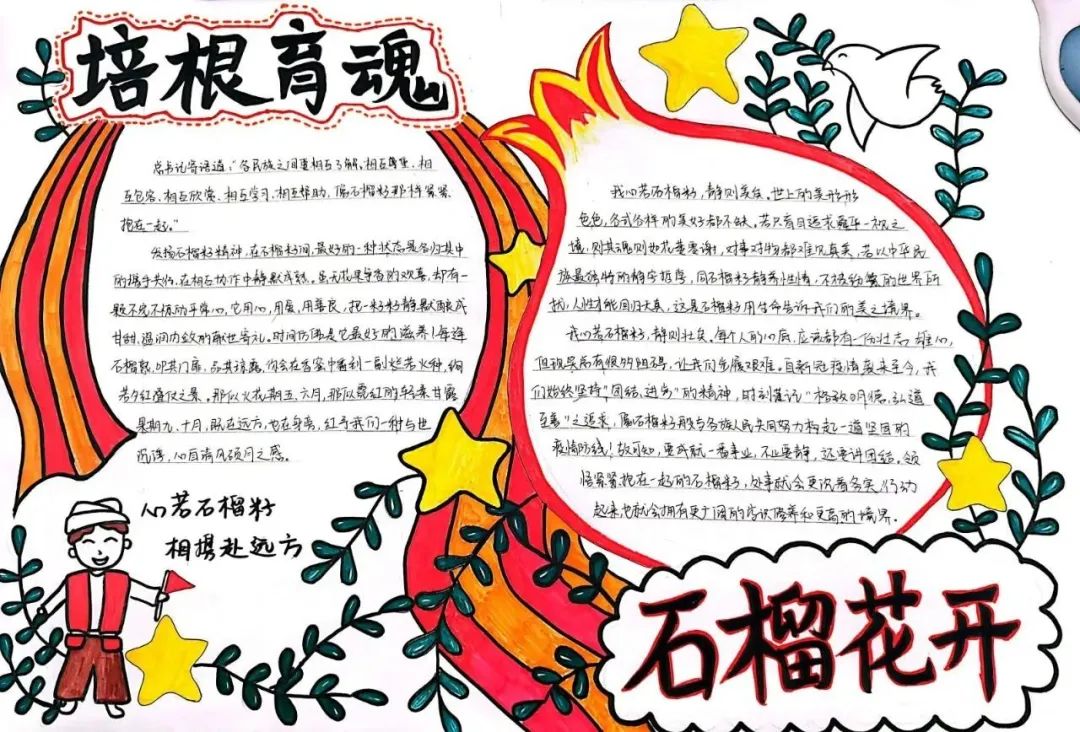 培根育魂
总书记寄语道:"各民族之间要相互了解、相互尊重、相
互包容、相互欣赏、相互学习、相互帮助,像石榴籽那样紧紧
抱在一起。"
发扬石榴籽精神,在石榴籽间,最好的一种状态是各归其中
的携手共伤,在相石协作中静默成熟。虽无花果争春的欢喜,却有一
颗不宠不惊的平常心,它用心,用爱,用善良,把一籽籽静默酿成
甘甜,温润
时间仿佛是它最好的滋养!每逢
石榴
那似火花期五、六月,那似霞红的轻柔甘露
是期九、十月,既在远方,也在身旁,红予我们一种与世
沉浮,心自清风朗月之感。
心若石榴籽
相携赴远方
我心若石榴籽,静则美矣。世上的美形形
色色,各式各样的美好都不缺。若只盲目追求奢华一极之
境,则其魂则如花萎枯谢,对事对物都难见真美,若以中华民
族最独特的静字哲学,同石榴籽静养性情,不揽纷繁的世界所
扰,人性才能回归大真,这是石榴籽用生命告诉我们的美之境界。
我心若石榴籽,静则壮矣。每个人的心后,应该都有一份壮志雄心,
但现实总有很多阻碍,让我们步履艰难。自新冠疫情袭来至今,我
们始终坚持"团结,进步"的精神,时刻谨记"格致明德,弘道
至善"之追求,像石榴籽般与各族人民共同努力构起一道坚固的
疫情防线!故可知,要成就一番事业,不止要静,还要讲团结。领
悟紧紧抱在一起的石榴籽,处事就会更沉着务实,行动
起来也就会拥有更广阔的学识修养和更高的境界。
石榴花开